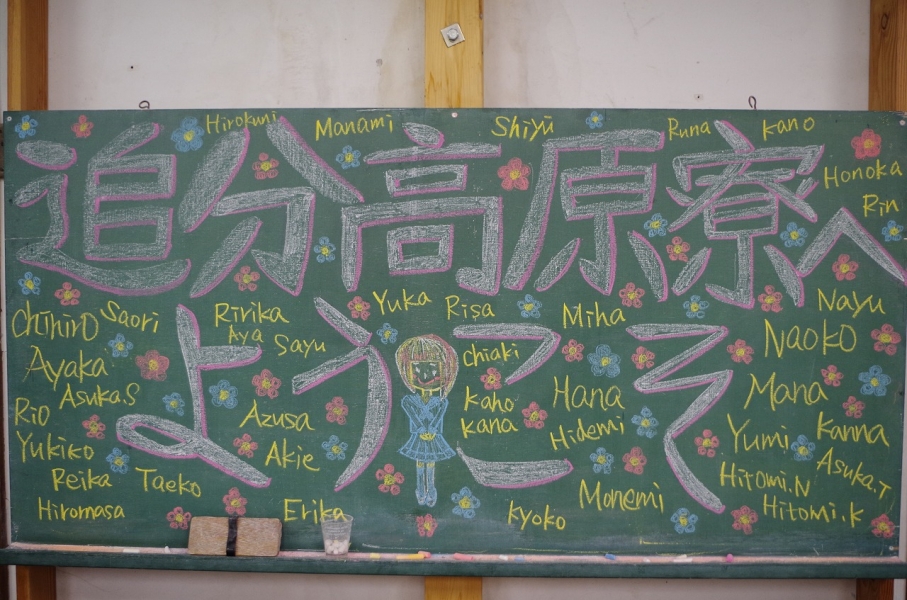 Hirokuni Manami Shiyū Runa Kano
追分高原寮へ
Honoka
Rin
ようこそ
Chihiro Saori Ririka Yuka Risa Miha Nayu
Aya Sayu Chiaki Naoko
Ayaka
Asuka.S Kaho Hana Mana
Rio Azusa Kana Hidemi Yumi Kanna
Yukiko Akie Hitomi.N Asuka.T
Reika Taeko Momemi
Hiromasa Erika Kyoko Hitomi.K